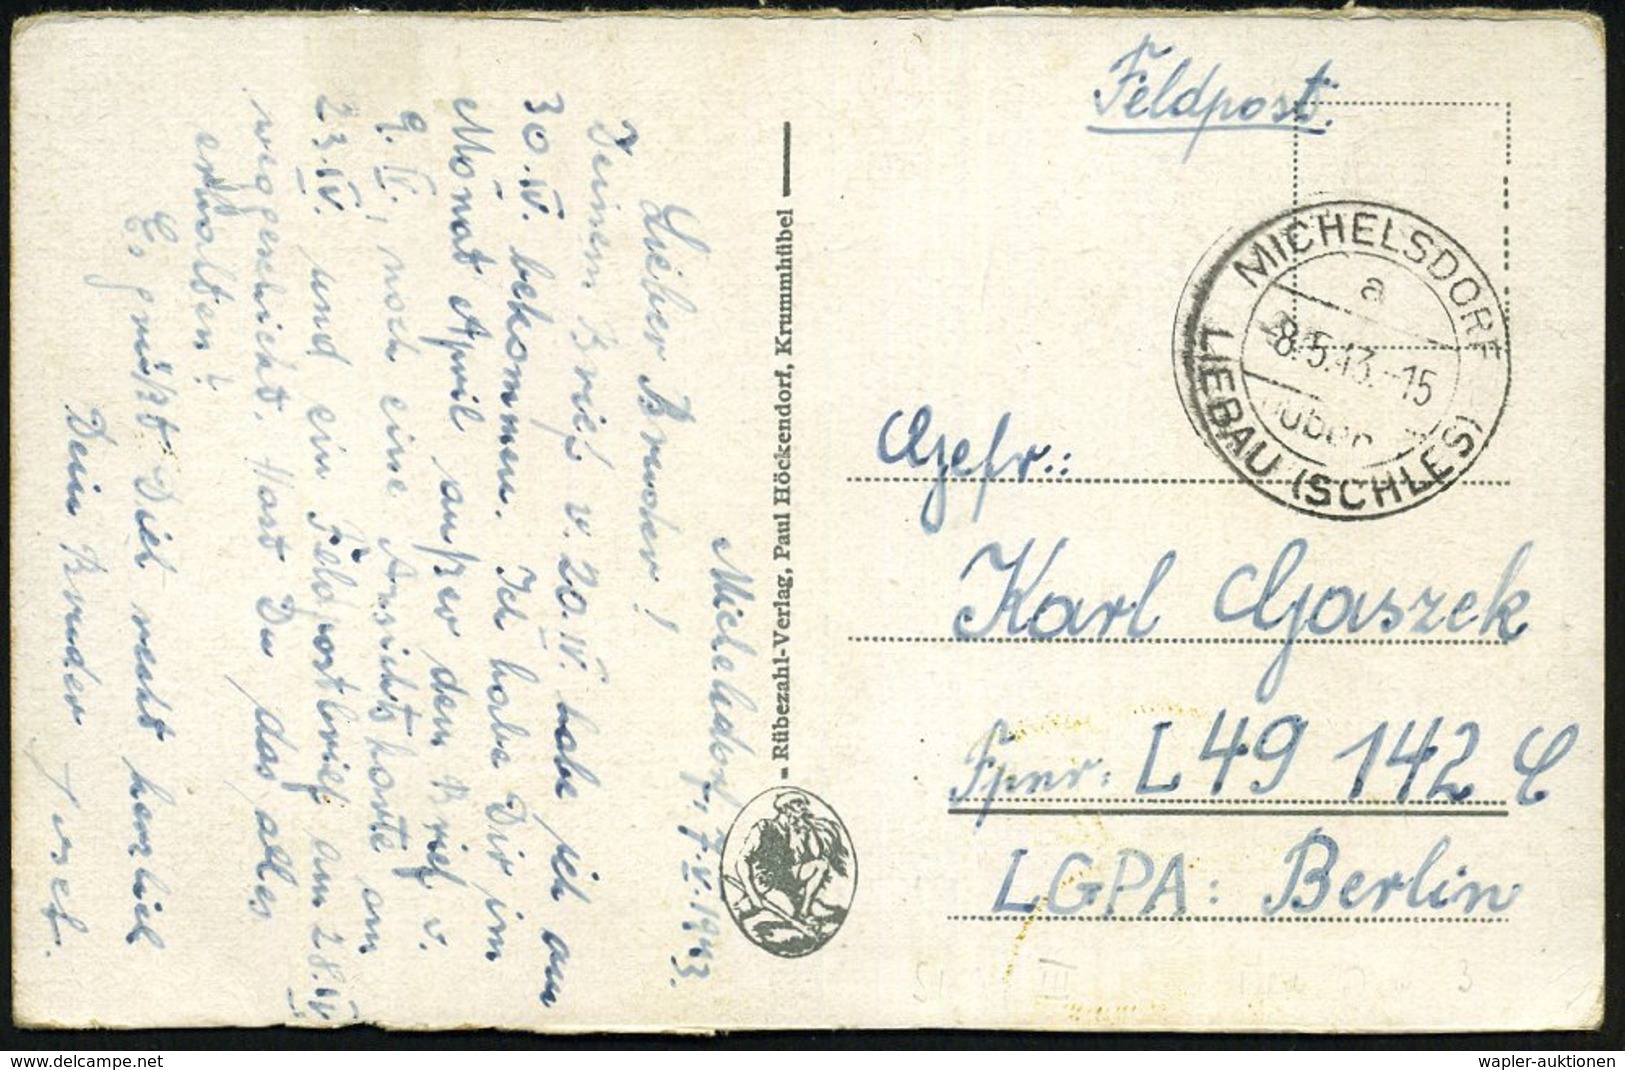 Michelsdorf, 7.V.1943.
Lieber Bruder!
Deinem Brief v. 20.IV. habe ich am
30.IV. bekommen. Ich habe Dir im
Monat April außer dem Brief v.
9.IV., noch eine Ansichtskarte am
23.IV. und ein Feldpostbrief am 28.IV
weggeschickt. Hast Du das alles
erhalten?
Es grüßt Dich recht herzlich
Dein Bruder Josef.
Rübezahl-Verlag, Paul Höckendorf, Krummhübel
Feldpost.
MICHELSDORF
a
8.5.43.-15
über
LIEBAU (SCHLES)
Gefr.:
Karl Gaszek
Fpnr. L 49 142 C
LGPA: Berlin
III
3
http://www.delcampe.net
wapler-auktionen